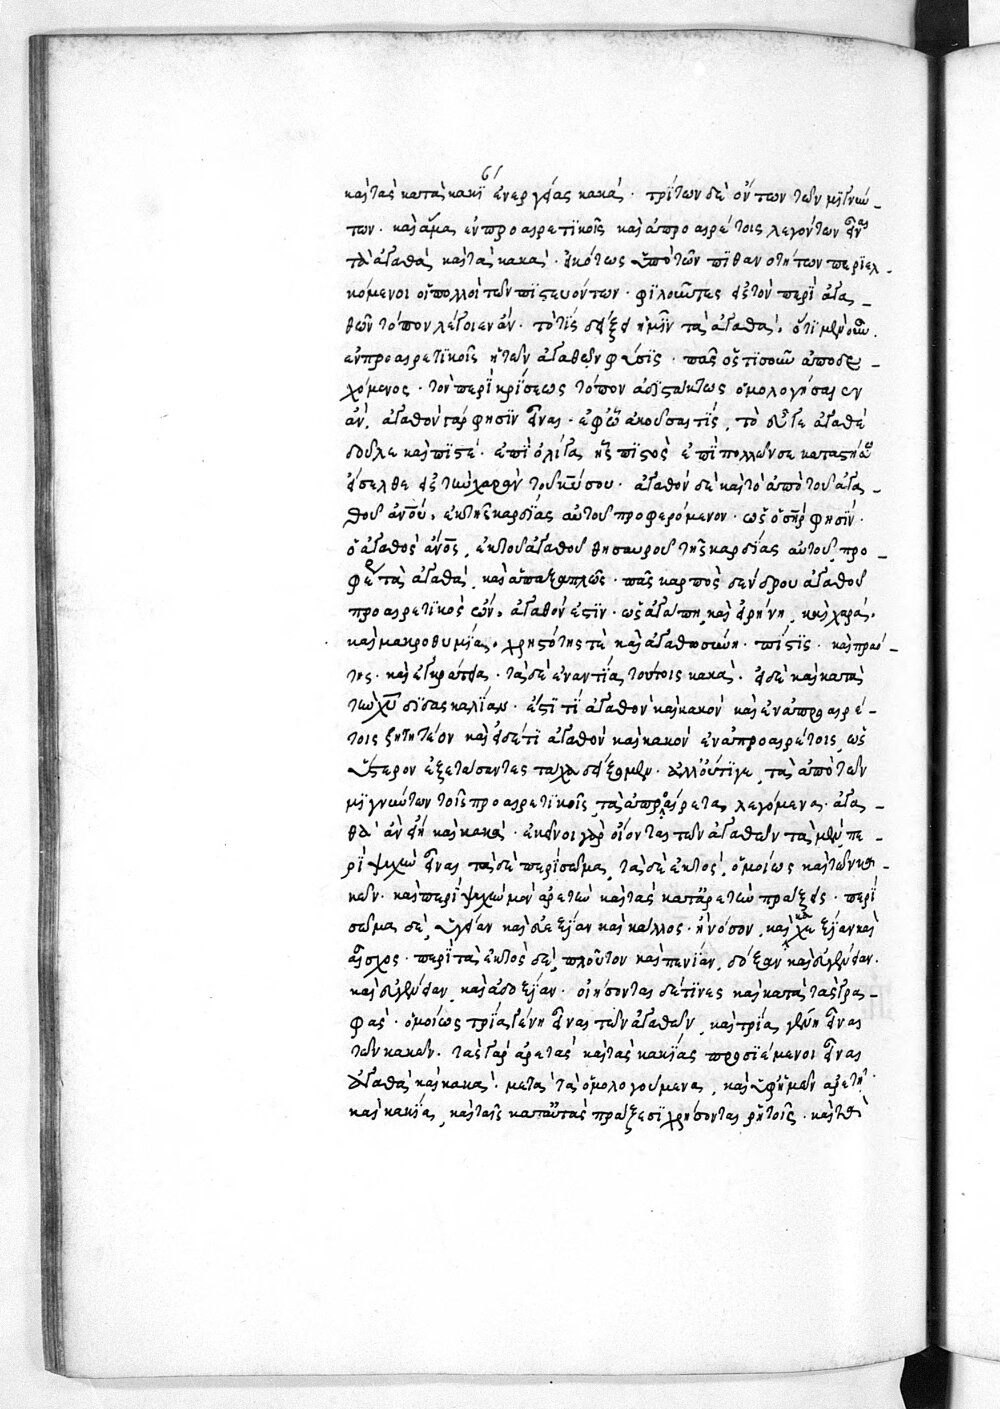 καὶ τὰς κατὰ κακί ἐνεργείας κακά. τρίτων δὲ ὄντων τῶν μιγνύ-
των. καὶ ἅμα ἐν προαιρετικοῖς καὶ ἀπροαιρέτοις λεγόντων εἶναι
τὰ ἀγαθὰ καὶ τὰ κακά. εἰκότως ὑπὸ τῶν πιθανοτήτων περιελ-
κόμενοι οἱ πολλοὶ τῶν πιστευόντων. φιλοιῶτες εἰς τὸν περὶ ἀγα-
θῶν τόπον λέγοιεν ἄν. τὸ τίς δείξει ἡμῖν τὰ ἀγαθά. ὅτι μὲν οὖν
ἐν προαιρετικοῖς ἡ τῶν ἀγαθῶν φύσις. πᾶς ὁστισοῦν ἀποδε-
χόμενος. τὸν περὶ κρίσεως τόπον ἀδιστάκτως ὁμολογήσαι
ἄν. ἀγαθὸν γάρ φησιν εἶναι. ἐφ' ᾧ ἀκούσαι τίς, τὸ εὖγε ἀγαθὲ
δοῦλε καὶ πιστέ. ἐπὶ ὀλίγα ἦς πιστὸς ἐπὶ πολλῶν σε καταστήσω
εἴσελθε εἰς τὴν χαρὰν τοῦ κυ̅ σου. ἀγαθὸν δὲ καὶ τὸ ἀπὸ τοῦ ἀγα-
θοῦ ἀνου̅, ἐκ τῆς καρδίας αὐτοῦ προφερόμενον. ὡς ὁ ση̅ρ φησίν.
ὁ ἀγαθὸς ἀνο̅ς, ἐκ τοῦ ἀγαθοῦ θησαυροῦ τῆς καρδίας αὐτοῦ, προ-
φέρει τὰ ἀγαθά, καὶ ἁπαξαπλῶς. πᾶς καρπὸς δένδρου ἀγαθοῦ
προαιρετικὸς ὤν, ἀγαθόν ἐστιν. ὡς ἀγάπη, καὶ εἰρήνη, καὶ χαρά.
καὶ μακροθυμία. χρηστότης τὲ καὶ ἀγαθωσύνη. πίστις. καὶ πραό-
της. καὶ ἐγκράτεια. τὰ δὲ ἐναντία τούτοις κακά. εἰ δὲ καὶ κατὰ
τὴν χυ̅ διδασκαλίαν. ἐστί τι ἀγαθὸν καὶ κακὸν καὶ ἐν ἀπροαιρέ-
τοις ζητητέον καὶ εἰ δέ τι ἀγαθὸν καὶ κακὸν ἐν ἀπροαιρέτοις, ὡς
ὕστερον ἐξετάσαντες τάχα δείξομεν. ἀλλ' οὔτιγε, τὰ ἀπὸ τῶν
μιγνύντων τοῖς προαιρετικοῖς, τὰ ἀπροαίρετα, λεγόμενα. ἀγα-
θὰ ἂν εἴη καὶ κακά. ἐκεῖνοι γὰρ οἴονται τῶν ἀγαθῶν τὰ μὲν πε-
ρὶ ψυχὴν εἶναι τὰ δὲ περὶ σῶμα, τὰ δὲ ἐκτός, ὁμοίως καὶ τῶν κα-
κῶν. καὶ περὶ ψυχὴν μὲν ἀρετὴν καὶ τὰς κατ' ἀρετὴν πράξεις. περὶ
σῶμα δὲ, ὑγείαν καὶ εὐεξίαν καὶ κάλλος. ἢ νόσον, καὶ καχεξίαν καὶ
αἶσχος. περὶ τὰ ἐκτὸς δὲ, πλοῦτον καὶ πενίαν, δόξαν καὶ εὐγένειαν.
καὶ δυσγένειαν, καὶ ἀδοξίαν. οἰήσονται δέ τινες καὶ κατὰ τὰς γρα-
φάς. ὁμοίως τρία γένη εἶναι τῶν ἀγαθῶν, καὶ τρία γένη εἶναι
τῶν κακῶν. τὰς γὰρ ἀρετὰς καὶ τὰς κακίας προσιέμενοι εἶναι
ἀγαθὰ καὶ κακά. μετὰ τὰ ὁμολογούμενα, καὶ ὑφ' ἡμῶν ἀρετὴν
καὶ κακία, καὶ ταῖς κατ' αὐτὰς πράξεσι χρήσονται ῥητοῖς. καὶ